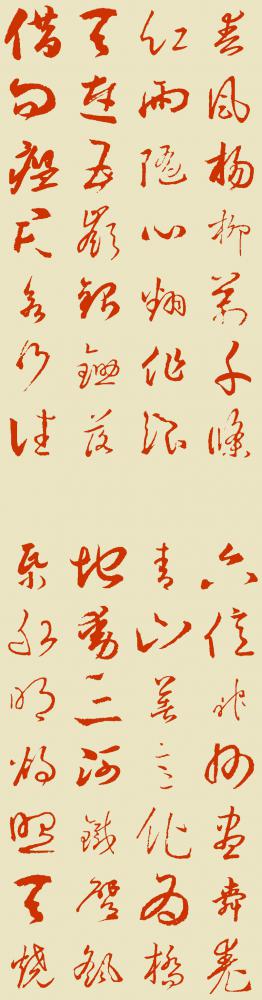 春風楊柳萬千條
六億神州盡舜堯
紅雨隨心翻作浪
青山着意化為橋
天連五嶺銀鋤落
地動三河鐵臂搖
借問瘟君欲何往
紙船明燭照天燒